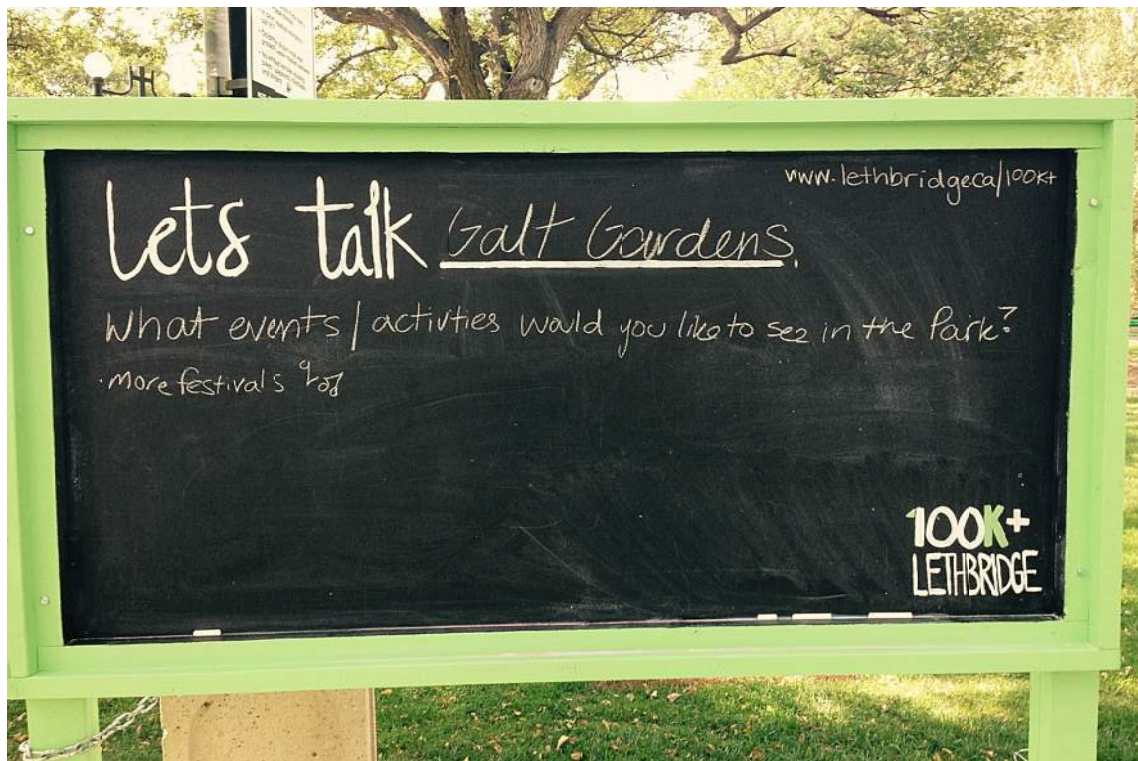 www.lethbridge.ca/100K+
Lets talk Galt Gardens.
What events/activties would you like to see in the Park?
·more festivals
100K+
LETHBRIDGE